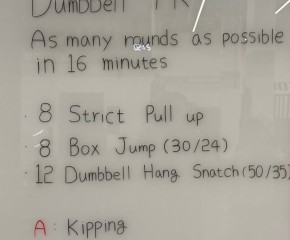 Dumbbell
As many rounds as possible
in 16 minutes
· 8 Strict Pull up
· 8 Box Jump (30/24)
· 12 Dumbbell Hang Snatch (50/35)
A : Kipping